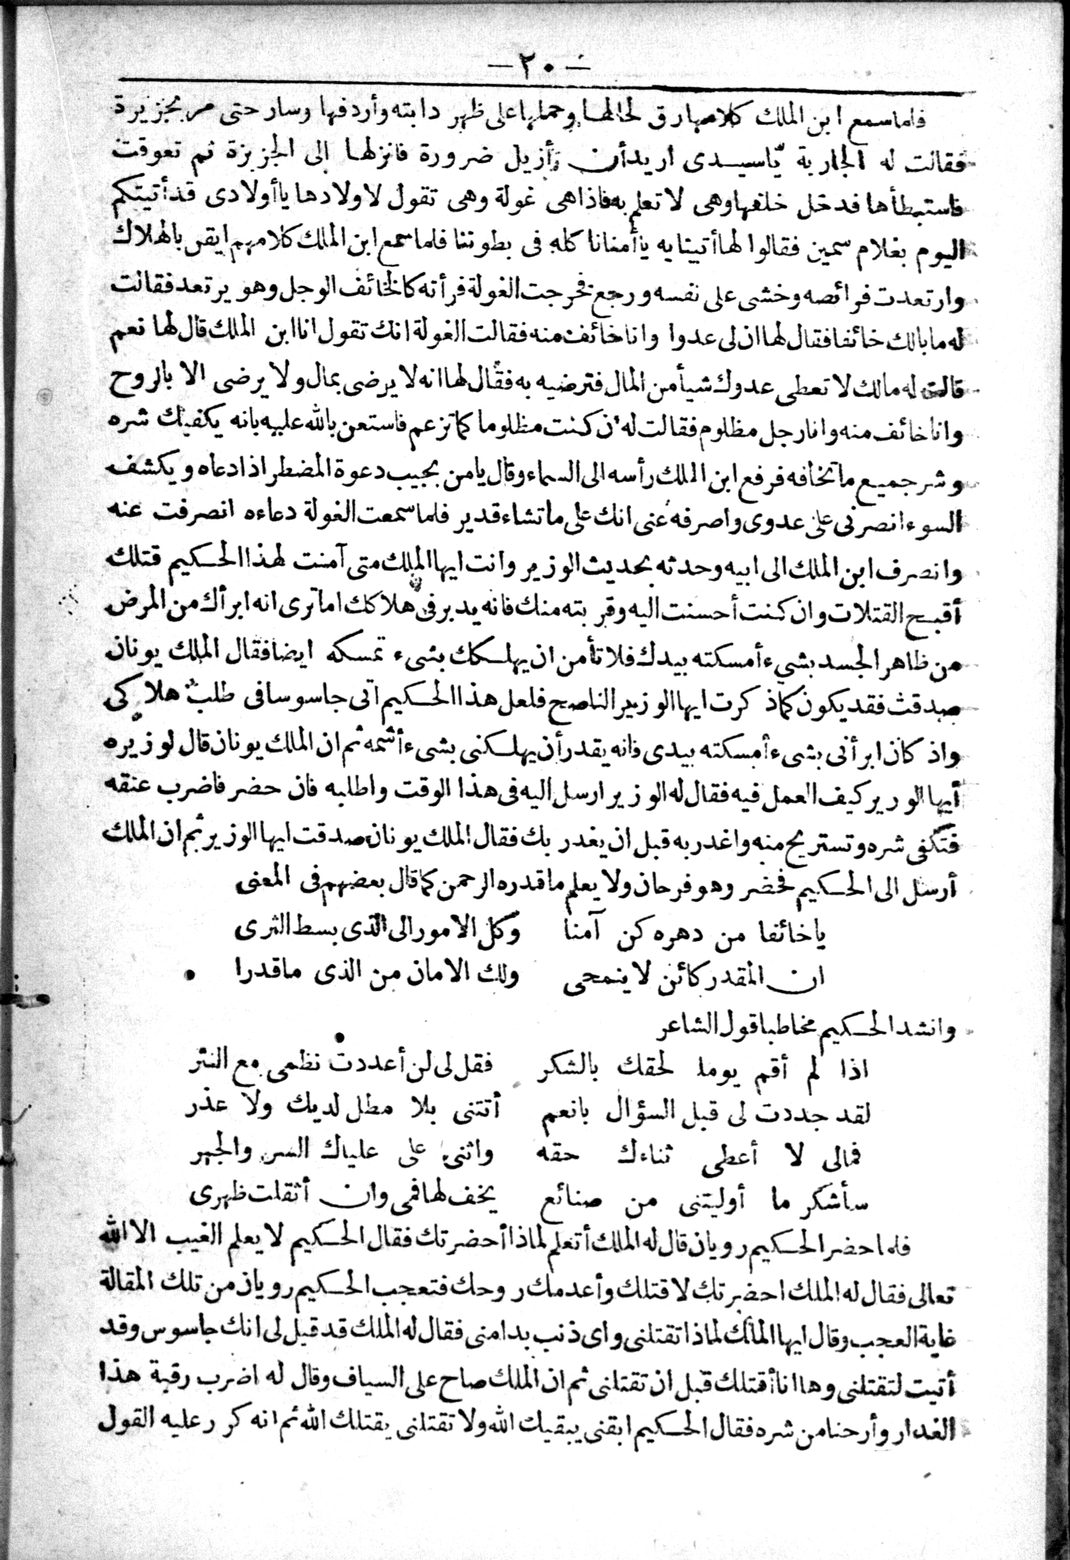 — ٢٠ —
فلما سمع ابن الملك كلامها رق لحالها وحملها على ظهر دابته وأردفها وسار حتى مر بجزيرة
فقالت له الجارية ياسيدى اريد أن أزيل ضرورة فانزلها إلى الجزيرة ثم تعوقت
فاستبطأها فدخل خلفها وهى لا تعلم به فاذا هى غولة وهى تقول لاولادها يا أولادى قد أتيتكم
اليوم بغلام سمين فقالوا لها أتينا به يا أمنا ناكله فى بطوننا فلما سمع ابن الملك كلامهم ايقن بالهلاك
وارتعدت فرائصه وخشى على نفسه ورجع فخرجت الغولة فرأته كالخائف الوجل وهو يرتعد فقالت
له مابالك خائفا فقال لها ان لى عدوا وانا خائف منه فقالت الغولة انك تقول انا ابن الملك قال لها نعم
قالت له مالك لا تعطى عدوك شيأ من المال فترضيه به فقال لها انه لا يرضى بمال ولا يرضى الا بالروح
وانا خائف منه وانا رجل مظلوم فقالت له ان كنت مظلوما كما تزعم فاستعن بالله عليه بانه يكفيك شره
وشر جميع ما تخافه فرفع ابن الملك رأسه الى السماء وقال يامن يجيب دعوة المضطر اذا دعاه ويكشف
السوء انصرنى على عدوى واصرفه عنى انك على ما تشاء قدير فلما سمعت الغولة دعاءه انصرفت عنه
وانصرف ابن الملك الى ابيه وحدثه بحديث الوزير وانت ايها الملك متى آمنت لهذا الحكيم قتلك
أقبح القتلات وان كنت أحسنت اليه وقربته منك فانه يدبر فى هلاكك اما ترى انه ابرأك من المرض
من ظاهر الجسد بشيء أمسكته بيدك فلا تأمن ان يهلكك بشىء تمسكه ايضا فقال الملك يونان
صدقت فقد يكون كما ذكرت ايها الوزير الناصح فلعل هذا الحكيم اتى جاسوسا فى طلب هلاكى
واذ كان ابرأنى بشىء أمسكته بيدى فانه يقدر أن يهلكنى بشىء أشمه ثم ان الملك يونان قال لوزيره
أيها الوزير كيف العمل فيه فقال له الوزير ارسل اليه فى هذا الوقت واطلبه فان حضر فاضرب عنقه
فتكفى شره وتستريح منه واغدر به قبل ان يغدر بك فقال الملك يونان صدقت ايها الوزير ثم ان الملك
أرسل الى الحكيم فحضر وهو فرحان ولا يعلم ما قدره الرحمن كما قال بعضهم فى المعنى
ياخائفا من دهره كن آمنا وكل الامور الى الذى بسط الثرى
ان المقدر كائن لا ينمحى ولك الامان من الذى ماقدرا
وانشد الحكيم مخاطبا قول الشاعر
اذا لم أقم يوما لحقك بالشكر فقل لى لن أعددت نظمى مع النثر
لقد جددت لى قبل السؤال بانعم أتتنى بلا مطل لديك ولا عذر
فمالى لا أعطى ثناءك حقه واثنى على علياك السر والجهر
سأشكر ما أوليتنى من صنائع يخف لها فمى وان أثقلت ظهرى
فلما حضر الحكيم رويان قال له الملك أتعلم لماذا أحضرتك فقال الحكيم لا يعلم الغيب الا الله
تعالى فقال له الملك احضرتك لاقتلك وأعدمك روحك فتعجب الحكيم رويان من تلك المقالة
غاية العجب وقال ايها الملك لماذا تقتلنى واى ذنب بدا منى فقال له الملك قد قيل لى انك جاسوس وقد
أتيت لتقتلنى وها انا أقتلك قبل ان تقتلنى ثم ان الملك صاح على السياف وقال له اضرب رقبة هذا
الغدار وأرحنا من شره فقال الحكيم ابقنى يبقيك الله ولا تقتلنى يقتلك الله ثم انه كرر عليه القول